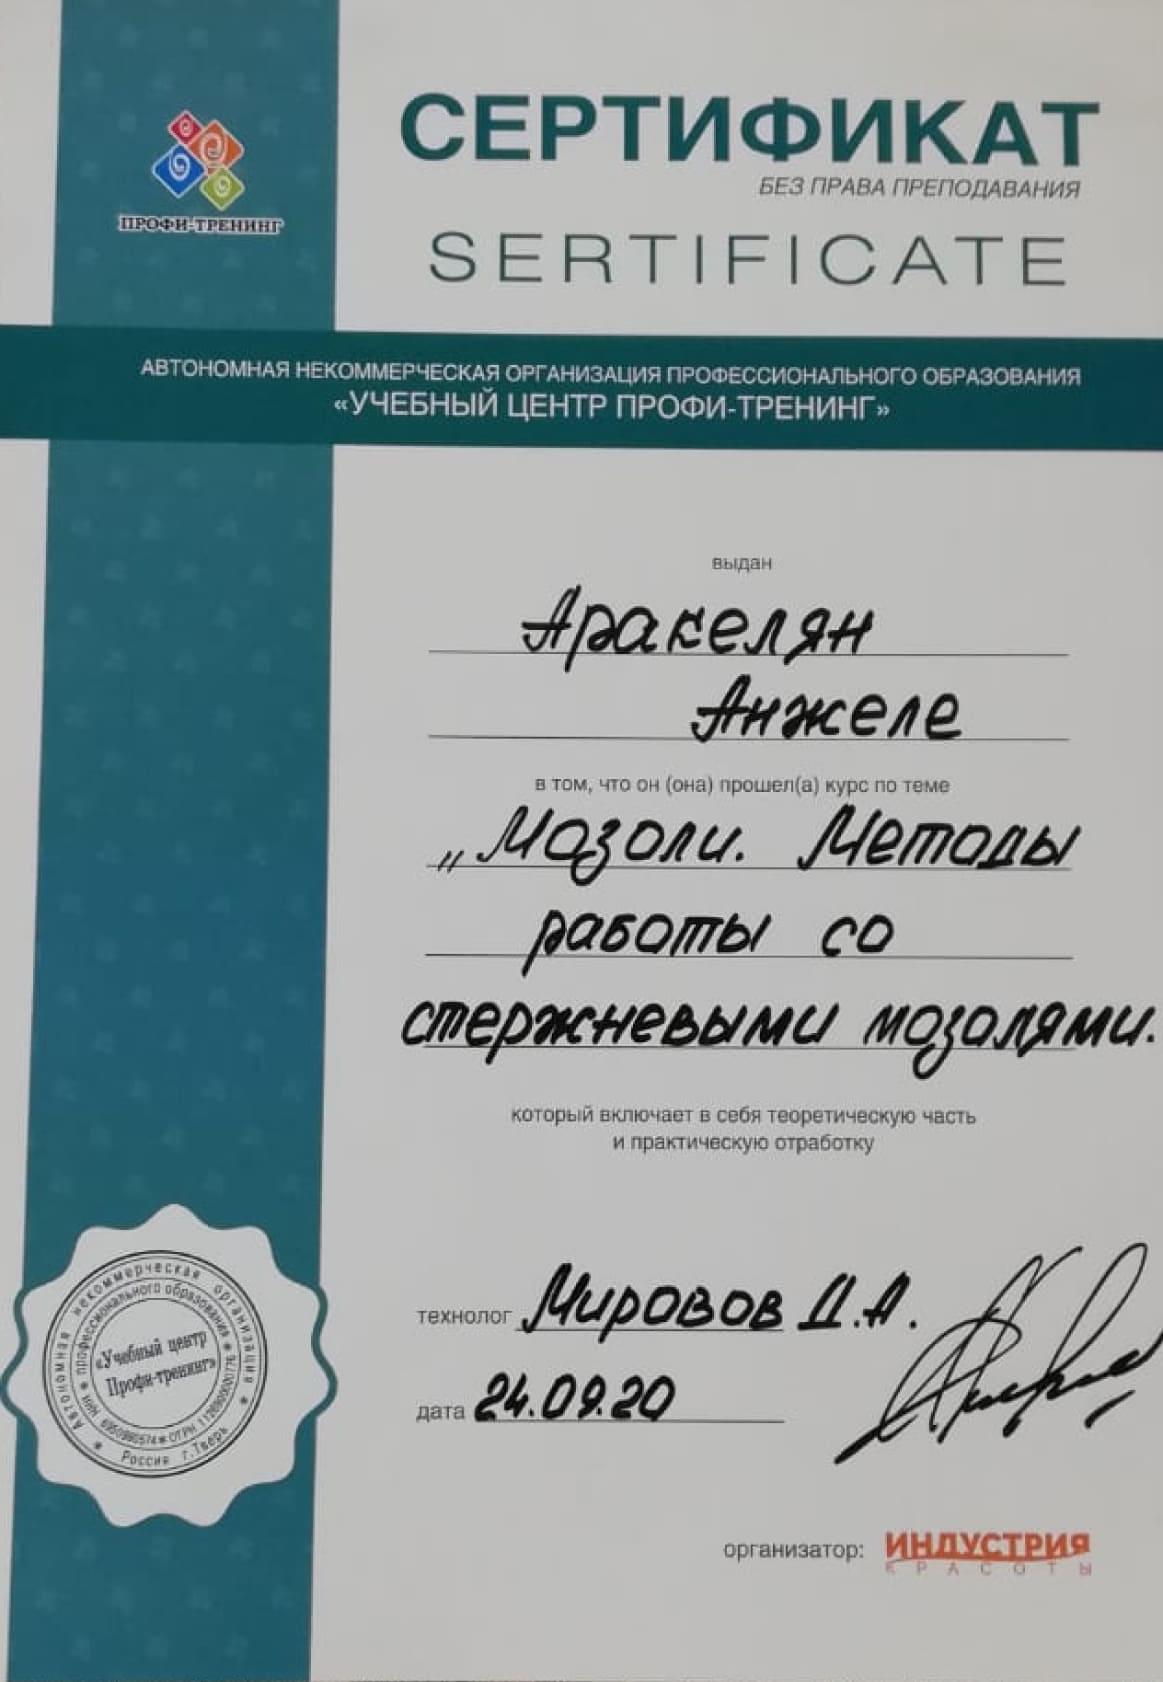 ПРОФИ-ТРЕНИНГ
СЕРТИФИКАТ
БЕЗ ПРАВА ПРЕПОДАВАНИЯ
SERTIFICATE
АВТОНОМНАЯ НЕКОММЕРЧЕСКАЯ ОРГАНИЗАЦИЯ ПРОФЕССИОНАЛЬНОГО ОБРАЗОВАНИЯ
«УЧЕБНЫЙ ЦЕНТР ПРОФИ-ТРЕНИНГ»
выдан
Аракелян
Анжеле
в том, что он (она) прошел(а) курс по теме
„Мозоли. Методы
работы со
стержневыми мозолями.
который включает в себя теоретическую часть
и практическую отработку
технолог Мировов Д.А.
дата 24.09.20
Автономная некоммерческая организация
профессионального образования
«Учебный центр
Профи-тренинг»
ИНН ОГРН
Россия г.Тверь
организатор: ИНДУСТРИЯ
КРАСОТЫ